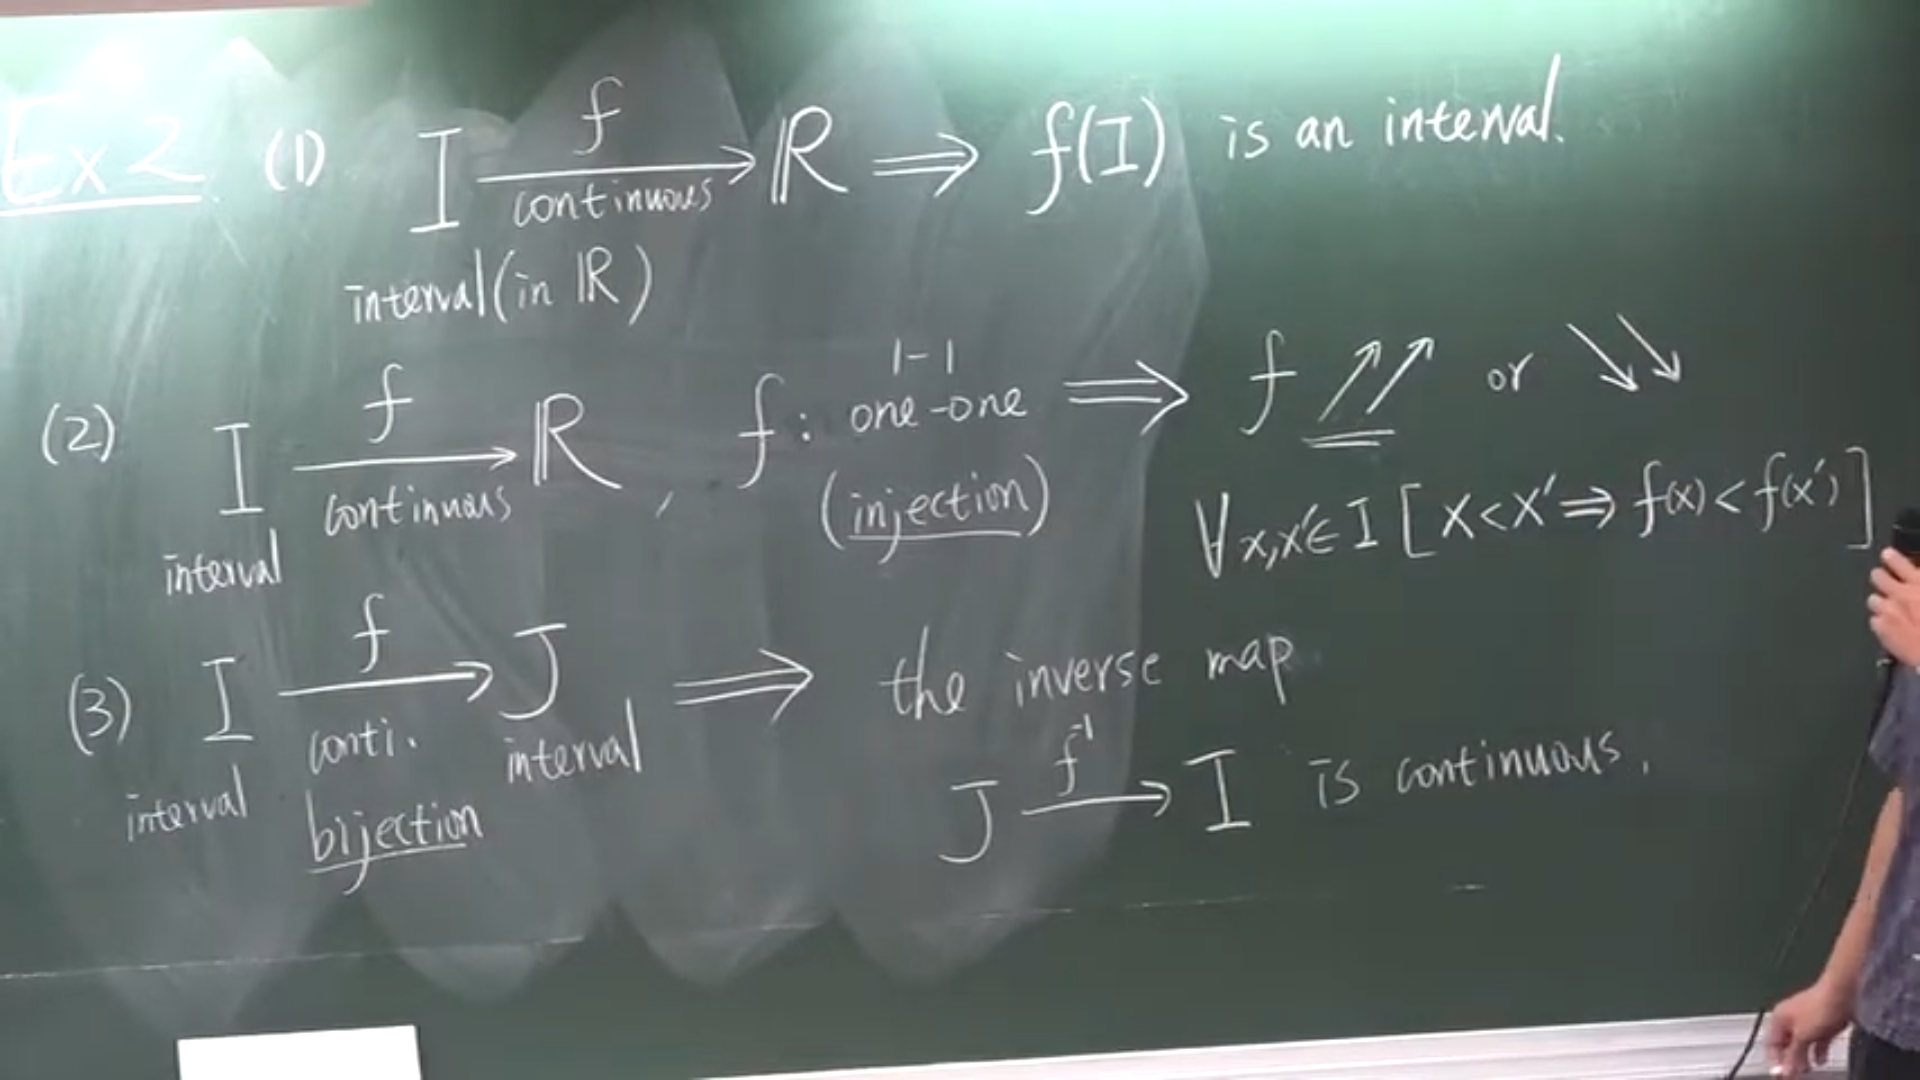 Ex 2. (1) I f→ continuous ℝ ⇒ f(I) is an interval.
interval (in ℝ)
(2) I f→ continuous ℝ, f: 1-1 one-one (injection) ⇒ f ↗↗ or ↘↘
interval
∀x,x'∈I [x<x' ⇒ f(x)<f(x')]
(3) I f→ conti. bijection J ⇒ the inverse map
interval interval
J f⁻¹→ I is continuous.